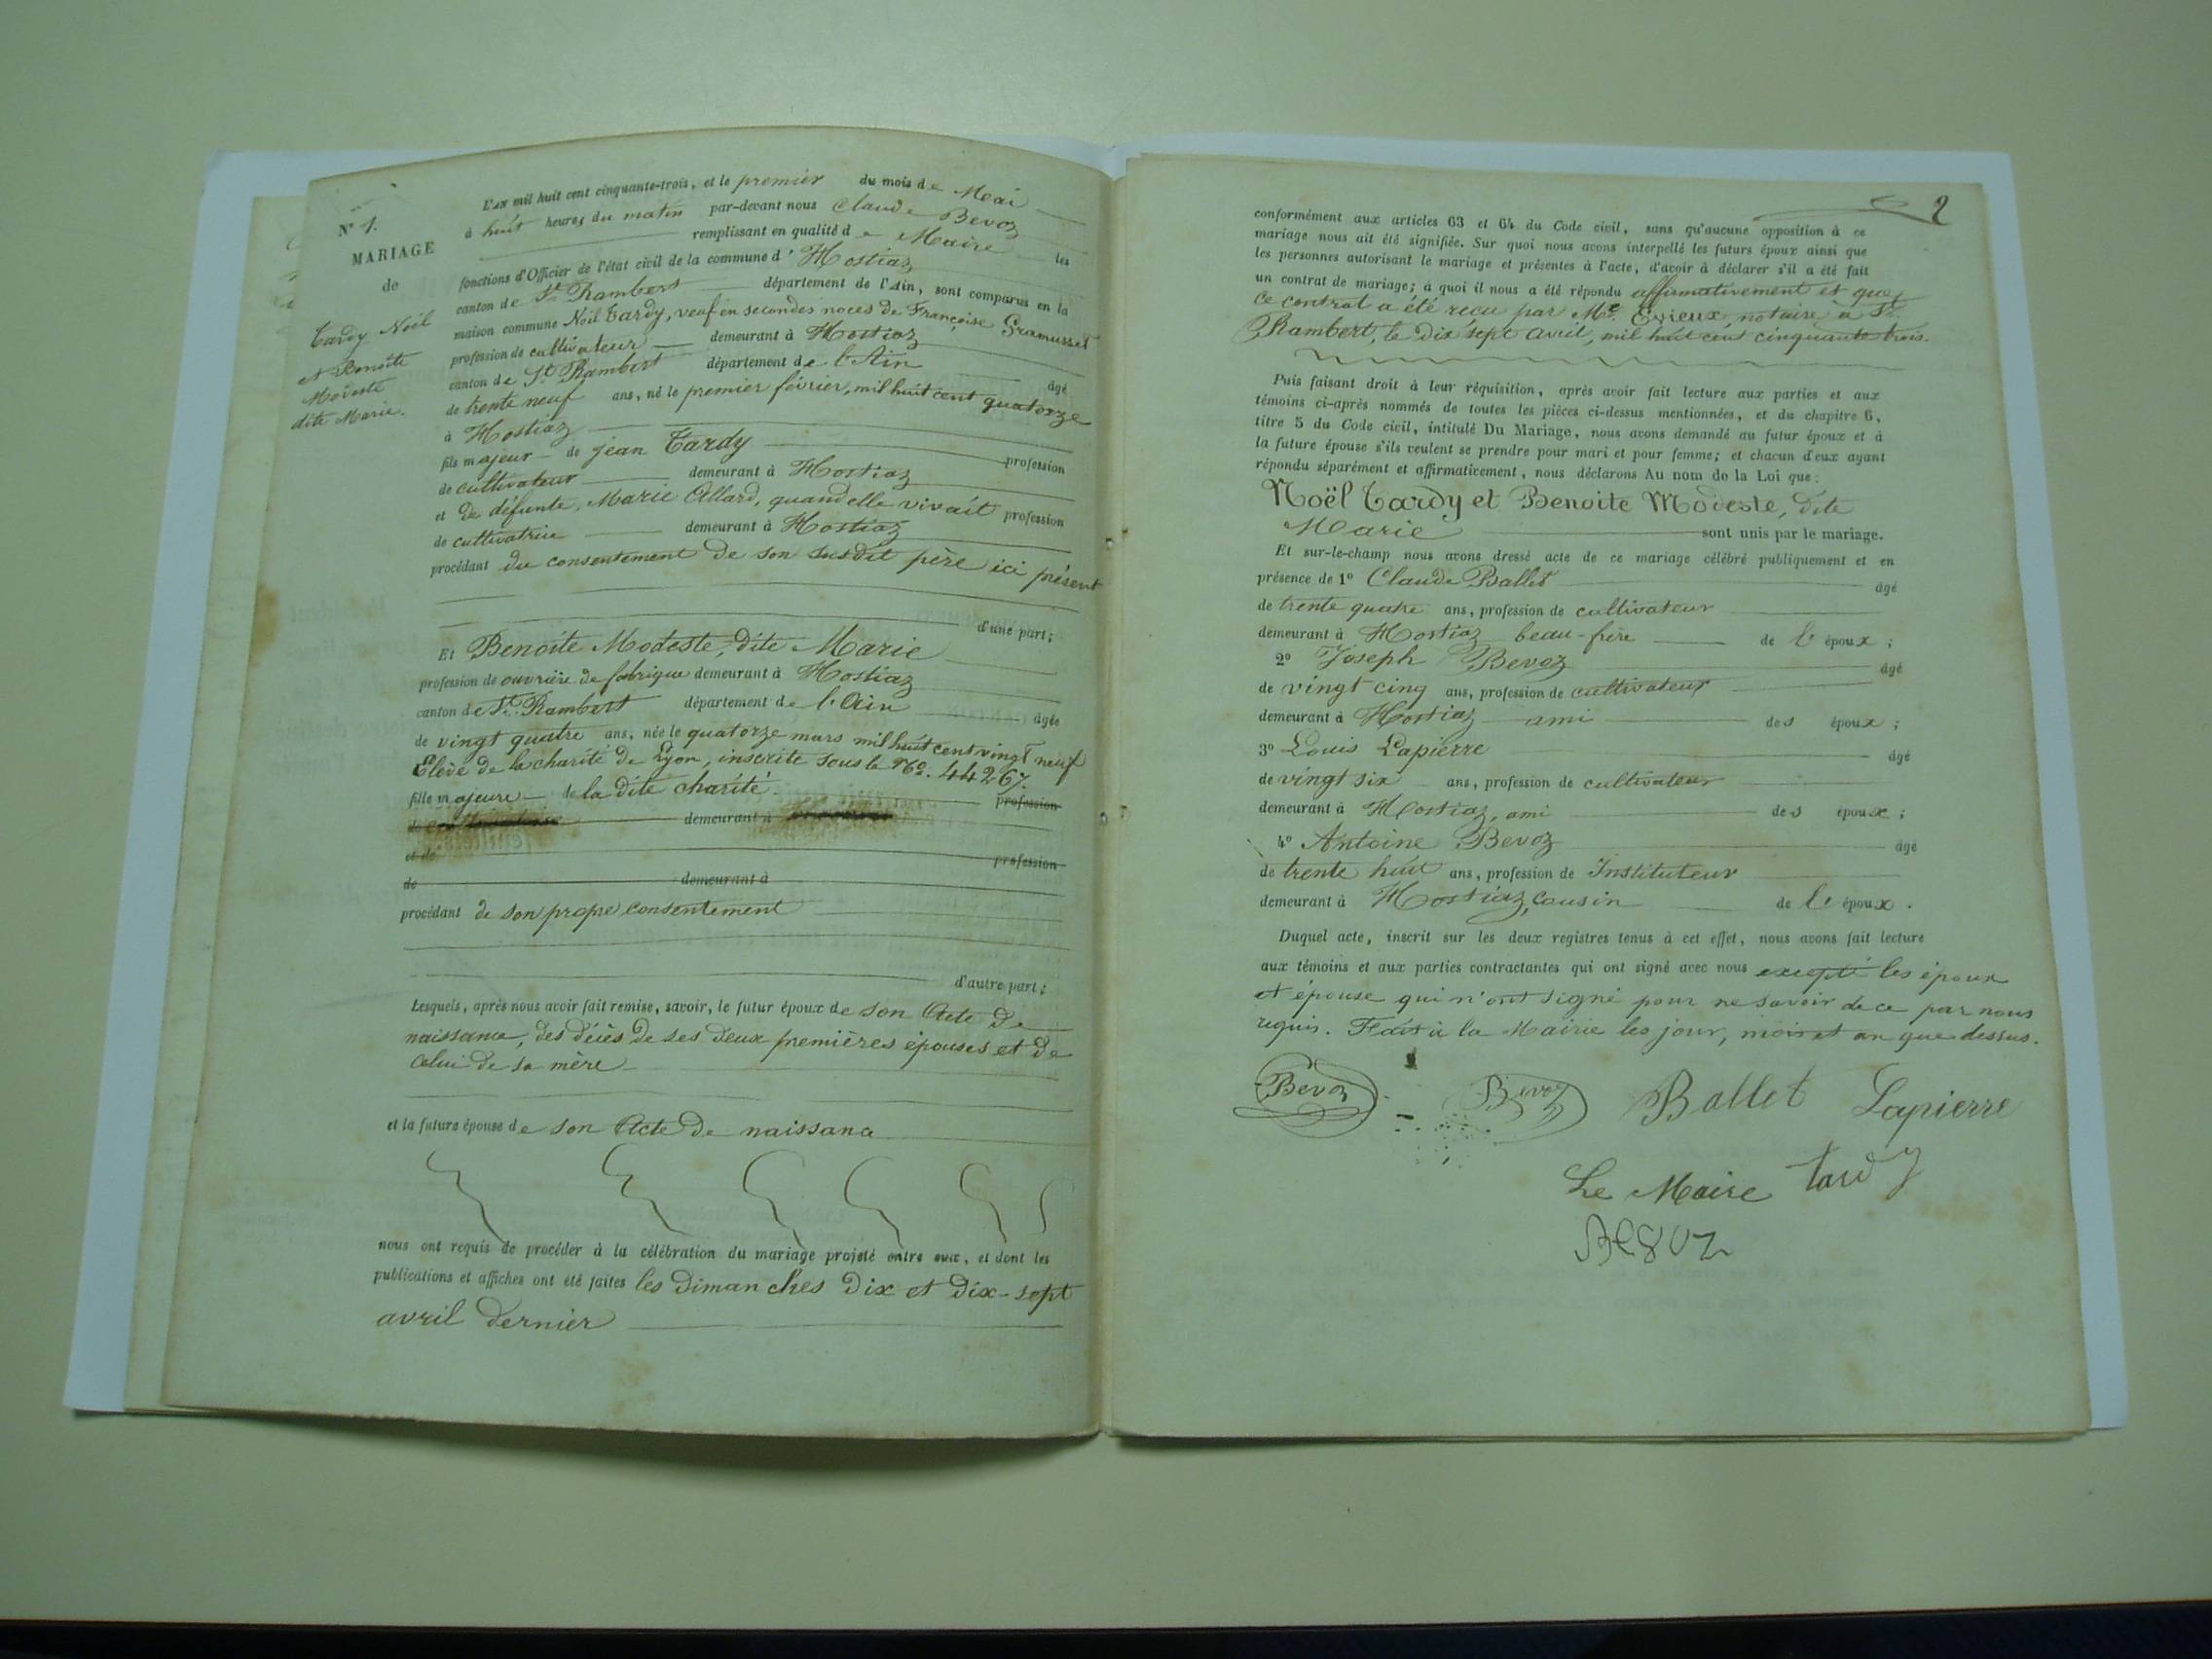 N° 1.
MARIAGE
de
Tardy Noël
et Benoite
Modeste
dite Marie.
L'AN mil huit cent cinquante-trois, et le premier du mois de Mai
à huit heures du matin par-devant nous Claude Bevoz
remplissant en qualité de Maire les
fonctions d'Officier de l'état civil de la commune d'Hostiaz
canton de St. Rambert département de l'Ain, sont comparus en la
maison commune Noël Tardy, veuf en secondes noces de Françoise Gramusset
profession de cultivateur demeurant à Hostiaz
canton de St. Rambert département de l'Ain âgé
de trente neuf ans, né le premier février, mil huit cent quatorze
à Hostiaz
fils majeur de jean Tardy profession
de cultivateur demeurant à Hostiaz
et de défunte, Marie Allard, quand elle vivait profession
de cultivatrice demeurant à Hostiaz
procédant du consentement de son susdit père ici présent
d'une part;
Et Benoite Modeste, dite Marie
profession de ouvrière de fabrique demeurant à Hostiaz
canton de St. Rambert département de l'Ain âgée
de vingt quatre ans, née le quatorze mars mil huit cent vingt neuf
Elève de la charité de Lyon, inscrite sous le No. 44267.
fille majeure de la dite charité. profession
demeurant à
et de profession
de demeurant à
procédant de son propre consentement
d'autre part;
Lesquels, après nous avoir fait remise, savoir, le futur époux de son Acte de
naissance, des décès de ses deux premières épouses et de
celui de sa mère
et la future épouse de son Acte de naissance
nous ont requis de procéder à la célébration du mariage projeté entre eux, et dont les
publications et affiches ont été faites les dimanches dix et dix-sept
avril dernier
2
conformément aux articles 63 et 64 du Code civil, sans qu'aucune opposition à ce
mariage nous ait été signifiée. Sur quoi nous avons interpellé les futurs époux ainsi que
les personnes autorisant le mariage et présentes à l'acte, d'avoir à déclarer s'il a été fait
un contrat de mariage; à quoi il nous a été répondu affirmativement et que
ce contrat a été reçu par Me. Evieux notaire à St.
Rambert, le dix sept avril, mil huit cent cinquante trois.
Puis faisant droit à leur réquisition, après avoir fait lecture aux parties et aux
témoins ci-après nommés de toutes les pièces ci-dessus mentionnées, et du chapitre 6,
titre 5 du Code civil, intitulé Du Mariage, nous avons demandé au futur époux et à
la future épouse s'ils veulent se prendre pour mari et pour femme; et chacun d'eux ayant
répondu séparément et affirmativement, nous déclarons Au nom de la Loi que:
Noël Tardy et Benoite Modeste, dite
Marie sont unis par le mariage.
Et sur-le-champ nous avons dressé acte de ce mariage célébré publiquement et en
présence de 1° Claude Ballet âgé
de trente quatre ans, profession de cultivateur
demeurant à Hostiaz beau-frère de l'époux;
2° Joseph Bevoz âgé
de vingt cinq ans, profession de cultivateur
demeurant à Hostiaz ami des époux;
3° Louis Lapierre âgé
de vingt six ans, profession de cultivateur
demeurant à Hostiaz, ami des époux;
4° Antoine Bevoz âgé
de trente huit ans, profession de Instituteur
demeurant à Hostiaz, cousin de l'époux.
Duquel acte, inscrit sur les deux registres tenus à cet effet, nous avons fait lecture
aux témoins et aux parties contractantes qui ont signé avec nous excepté les époux
et épouse qui n'ont signé pour ne savoir de ce par nous
requis. Fait à la Mairie les jour, mois et an que dessus.
Bevoz Bevoz Ballet Lapierre
Le Maire Tardy
Bevoz